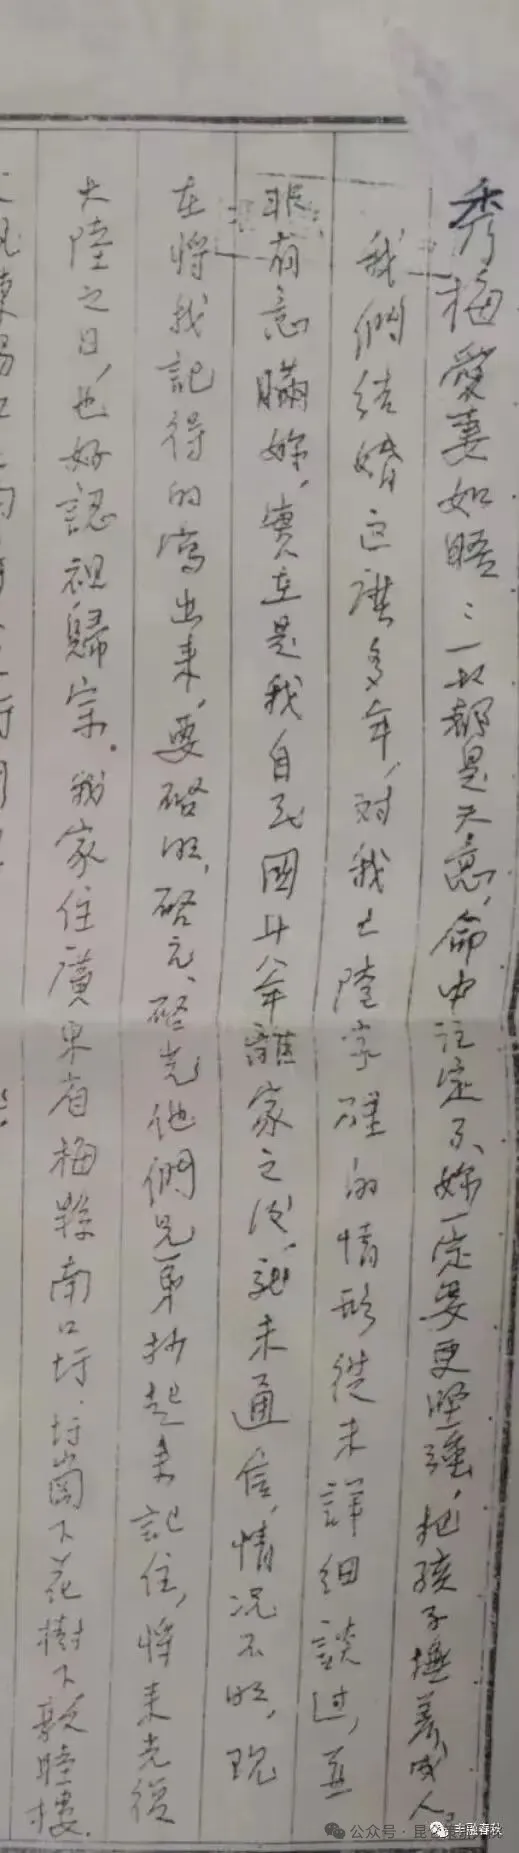 秀梅愛妻如晤:一切都是天意,命中註定了、妳一定要更堅強,把孩子撫養成人。
我們結婚這麼多年,對我大陸家裡的情形從未詳細談过,並
非有意瞞妳,實在是我自民國廿八年離家之後,就未通信,情況不明,現
在將我記得的寫出來,要啓明、啓元、啓光他們兄弟抄起來記住,將来光復
大陸之日,也好認祖歸宗。我家住廣東省梅縣南口圩、圩崗下花樹下敦睦樓.
公众号·昆
丰融春秋